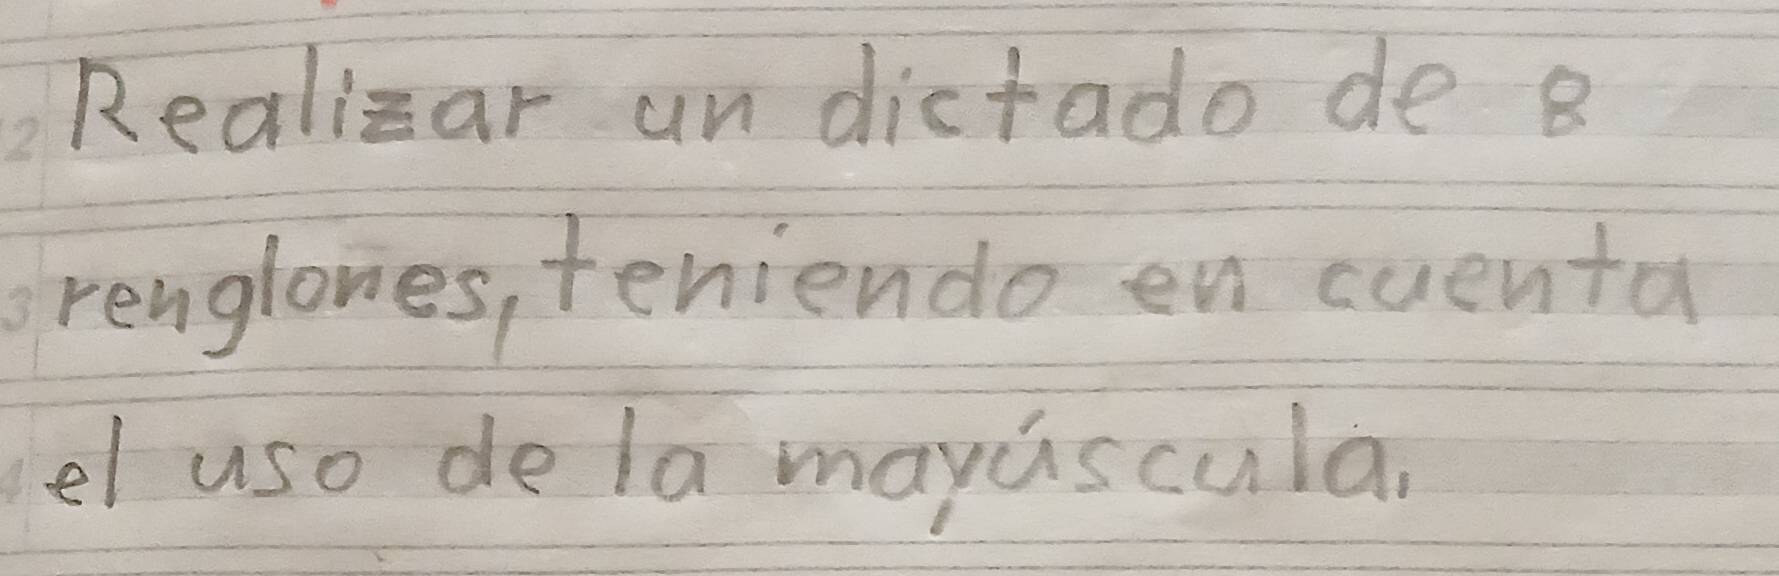 Realizar un dictado de 8
renglones, teniendo en cuenta
el uso de la mayúscula.